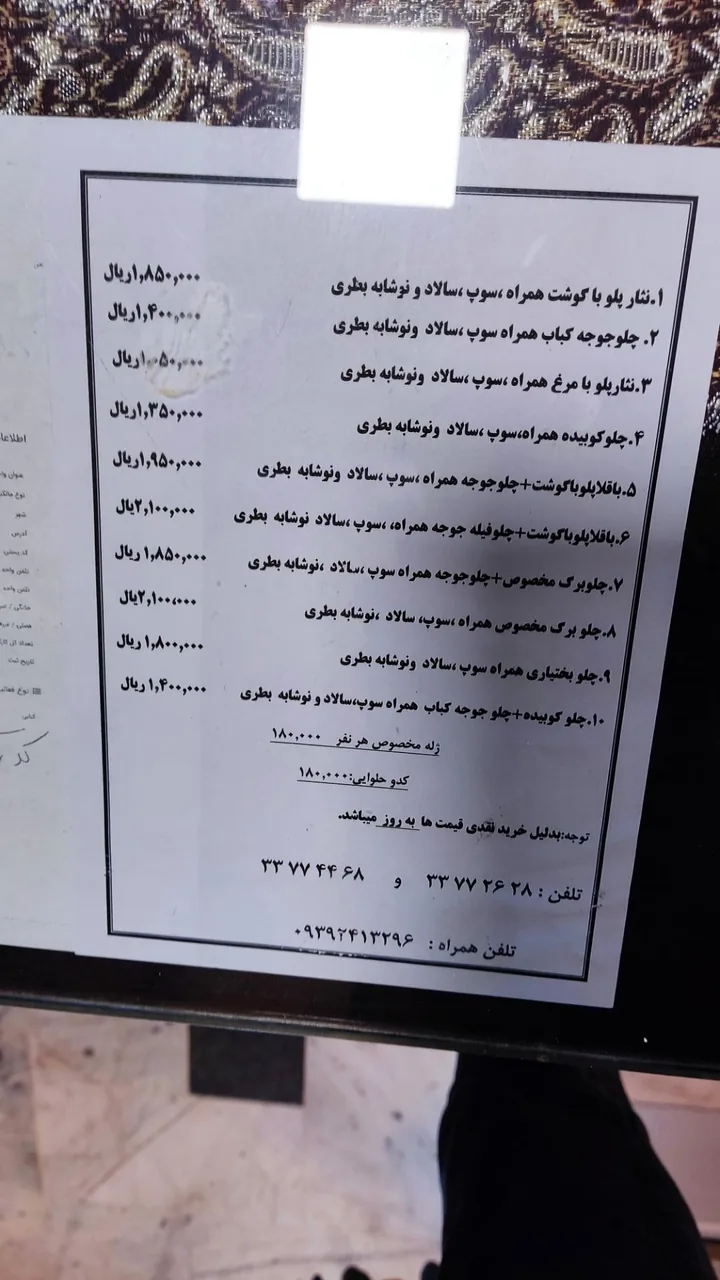 ۱.نثار پلو با گوشت همراه ،سوپ ،سالاد و نوشابه بطری ۱,۸۵۰,۰۰۰ریال
۲. چلوجوجه کباب همراه سوپ ،سالاد ونوشابه بطری ۱,۴۰۰,۰۰۰ریال
۳.نثارپلو با مرغ همراه ،سوپ ،سالاد ونوشابه بطری ۱,۰۵۰,۰۰۰ریال
۴.چلوکوبیده همراه،سوپ ،سالاد ونوشابه بطری ۱,۳۵۰,۰۰۰ریال
۵.باقلاپلوباگوشت+چلوجوجه همراه ،سوپ ،سالاد ونوشابه بطری ۱,۹۵۰,۰۰۰ریال
۶.باقلاپلوباگوشت+چلوفیله جوجه همراه، ،سوپ ،سالاد نوشابه بطری ۲,۱۰۰,۰۰۰یال
۷.چلوبرگ مخصوص+چلوجوجه همراه سوپ ،سالاد ،نوشابه بطری ۱,۸۵۰,۰۰۰ ریال
۸.چلو برگ مخصوص همراه ،سوپ، سالاد ،نوشابه بطری ۲,۱۰۰,۰۰۰یال
۹.چلو بختیاری همراه سوپ ،سالاد ونوشابه بطری ۱,۸۰۰,۰۰۰ ریال
۱۰.چلو کوبیده+چلو جوجه کباب همراه سوپ،سالاد و نوشابه بطری ۱,۴۰۰,۰۰۰ ریال
ژله مخصوص هر نفر ۱۸۰,۰۰۰
کدو حلوایی:۱۸۰,۰۰۰
توجه:بدلیل خرید نقدی قیمت ها به روز میباشد.
تلفن : ۲۸ ۲۶ ۷۷ ۳۳ و ۶۸ ۴۴ ۷۷ ۳۳
تلفن همراه : ۰۹۳۹۲۴۱۳۲۹۶
شهر
آدرس
کد پستی
تلفن واحد
تاریخ ثبت